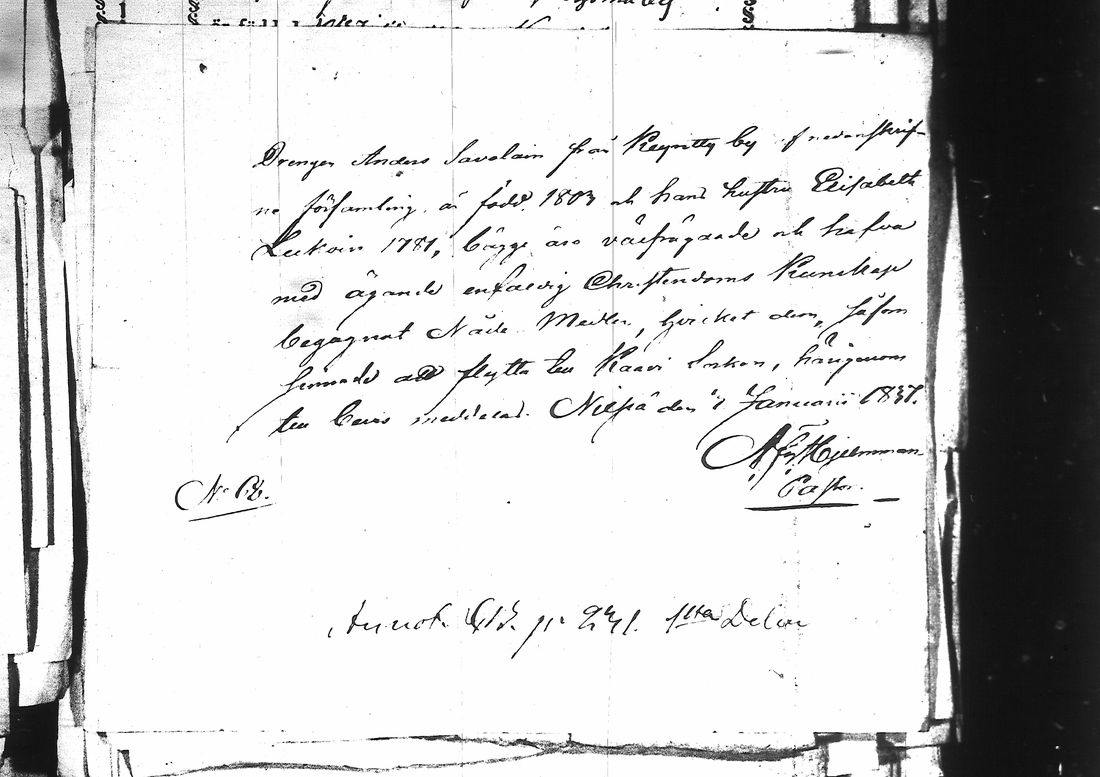 Drengen Anders Savolain från Keyritty by af nedanskrif-
ne församling, är född 1803 och hans hustru Elisabeth
Leskain 1781, bägge äro välfrägdade och hafva
med ägande enfaldig Christendoms Kunskap
begagnat Nåde Medlen, hvilket dem, såsom
sinnade att flytta till Kaavi Socken, härigenom
till bevis meddelas. Nilsiä den 1 Januarii 1837.
Hjelmman
Pastor.
No
Annot. pag. 1sta Delen